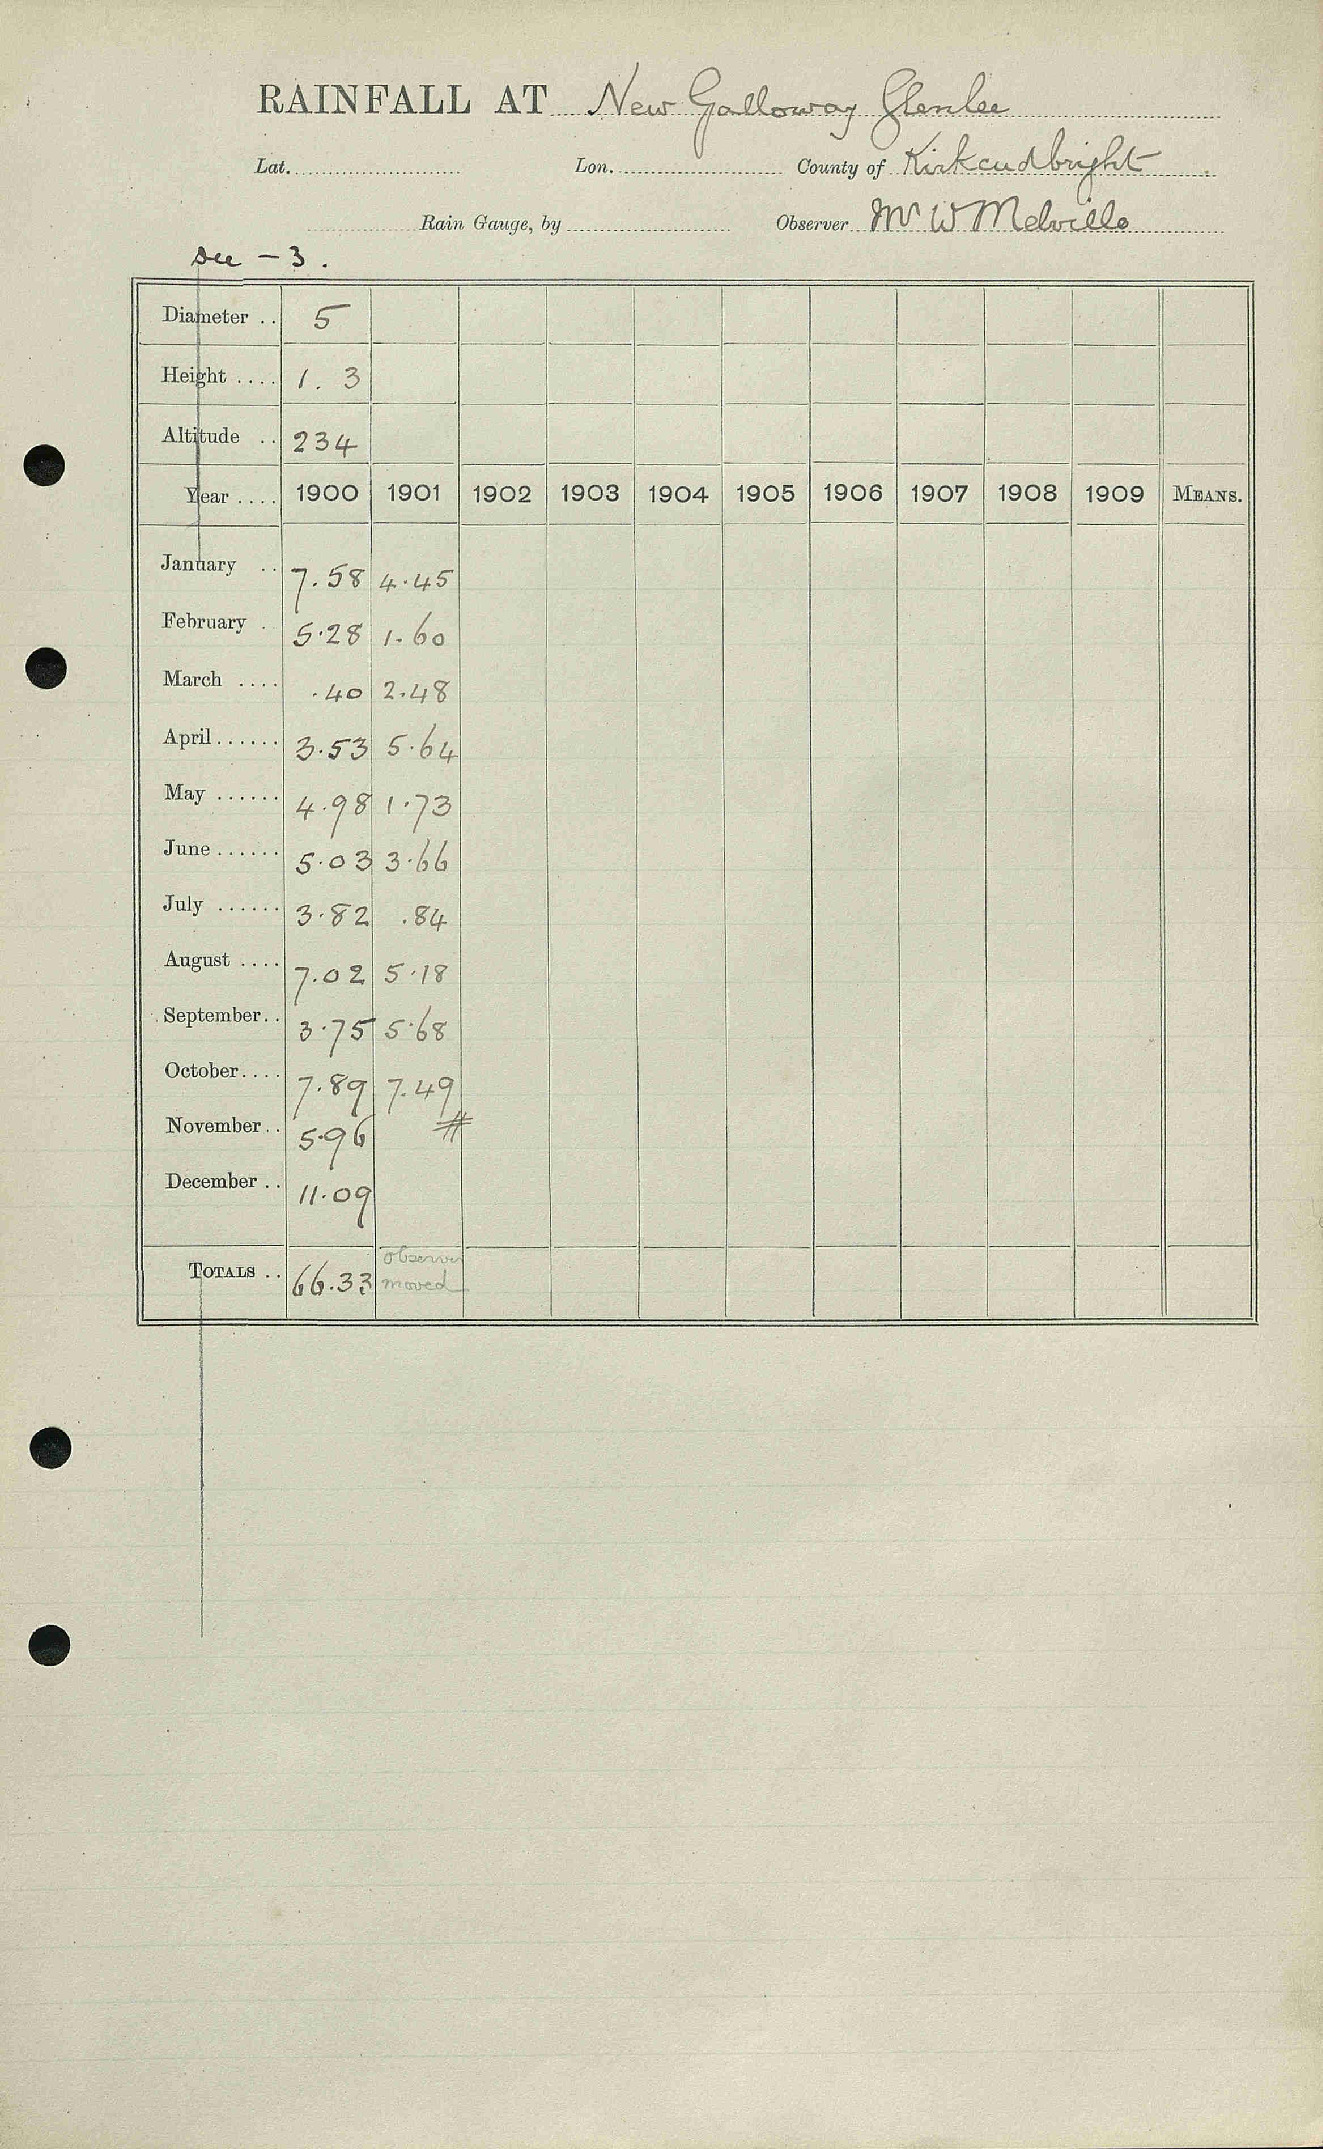 RAINFALL AT New Galloway Glenlee
Lat. Lon. County of Kirkcudbright
Rain Gauge, by Observer Mr W Melville
See - 3.
Diameter .. 5
Height .... 1. 3
Altitude .. 234
Year .... 1900 1901 1902 1903 1904 1905 1906 1907 1908 1909 MEANS.
January .. 7.58 4.45
February . 5.28 1.60
March .... .40 2.48
April ...... 3.53 5.64
May ...... 4.98 1.73
June ...... 5.03 3.66
July ...... 3.82 .84
August .... 7.02 5.18
September.. 3.75 5.68
October.... 7.89 7.49
November.. 5.96 #
December .. 11.09
observer
TOTALS .. 66.33 moved